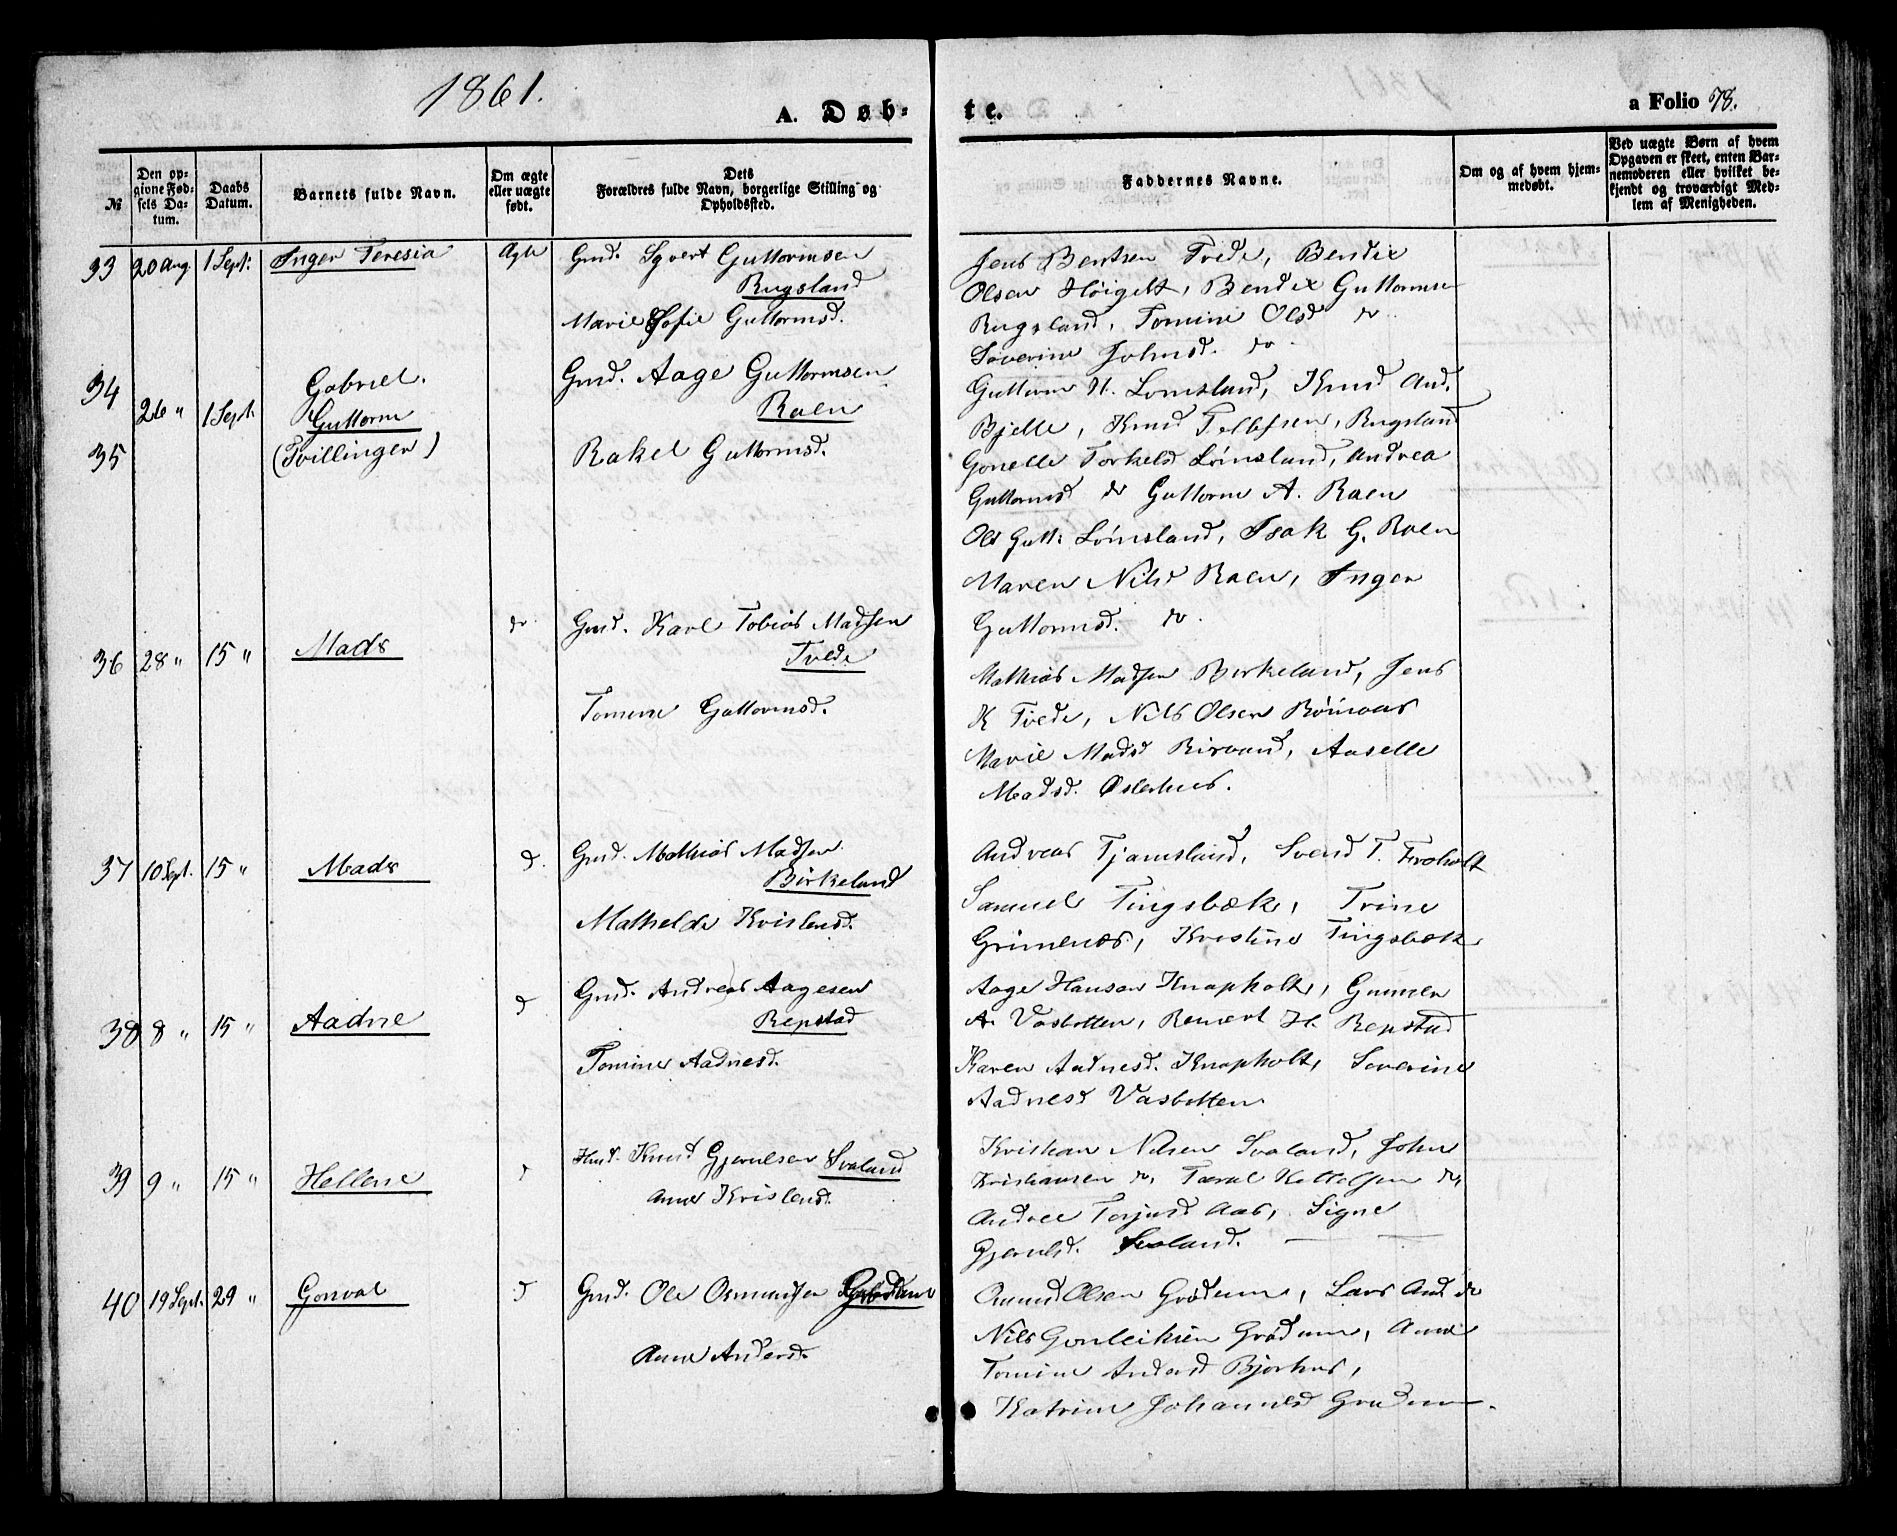 1861.
A. Døb-
te.
a Folio 78.
№
Den opgivne Fødsels Datum.
Daabs Datum.
Barnets fulde Navn.
Om ægte eller uægte født.
Dets Forældres fulde Navn, borgerlige Stilling og Opholdssted.
Faddernes Navne.
Om og af hvem hjemmedøbt.
Ved uægte Børn af hvem Opgaven er skeet, enten Barnemoderen eller hvilket bekjendt og troværdigt Medlem af Menigheden.
33 20 Aug. 1 Sept. Inger Teresia Ægte Gmd. Syvert Guttormsen
Rugsland
Marie Sofie Guttormsd.
Jens Bentsen Tvede, Bendix
Olsen Høigilt, Bendix Guttormsen
Rugsland, Tomine Olsd do
Severine Johnsd. do.
34 26 " 1 Sept. Gabriel.
Guttorm
35 (Tvillinger)
Gmd. Aage Guttormsen
Raen
Rakel Guttormsd.
Guttorm N. Lomsland, Knud And.
Bjelle, Knud Tellefsen, Rugsland
Gonelle Torkelsd Lømsland, Andrea
Guttormsd do Guttorm A. Raen
Ole Gutt. Lømsland, Isak G. Raen
Maren Nilsd Raen, Inger
Guttormsd. do.
36 28 " 15 " Mads do Gmd. Karl Tobias Madsen
Tvede
Tomine Guttormsd.
Mathias Madsen Birkeland, Jens
K Tvede, Nils Olsen
Marie Madsd Aaselle
Madsd. Østerhus.
37 10 Sept. 15 " Mads d. Gmd. Mathias Madsen
Birkeland
Mathelde Kristensd.
Andreas Tjomsland, Svend T. Froholt
Samuel Tingsbæk, Trine
Grimenæs, Kristine Tingsbæk
38 8 " 15 " Aadne d Gmd. Andreas Aagesen
Repstad
Tomine Aadnesd.
Aage Hansen Knapholt, Gunnen
A. Vasbotten, Reinert H. Repstad
Karen Aadnesd. Knapholt, Severine
Aadnesd Vasbotten
39 9 " 15 " Hellene d Hmd. Knud Gjerulsen Svaland
Anne Kristensd.
Kristian Nilsen Svaland, John
Kristiansen do, Taral Kettelsen do,
Andree Torjusd Aas, Signe
Gjerulsd. Svaland.
40 19 Sept. 29 " Gonval d Gmd. Ole Osmundsen Grødum
Anne Andersd.
Omund Olsen Grødum, Lars And do
Nils Gonleiksen Grødum, Anne
Tomine Andersd Bjorhus,
Katrine Johannesd Grødum.